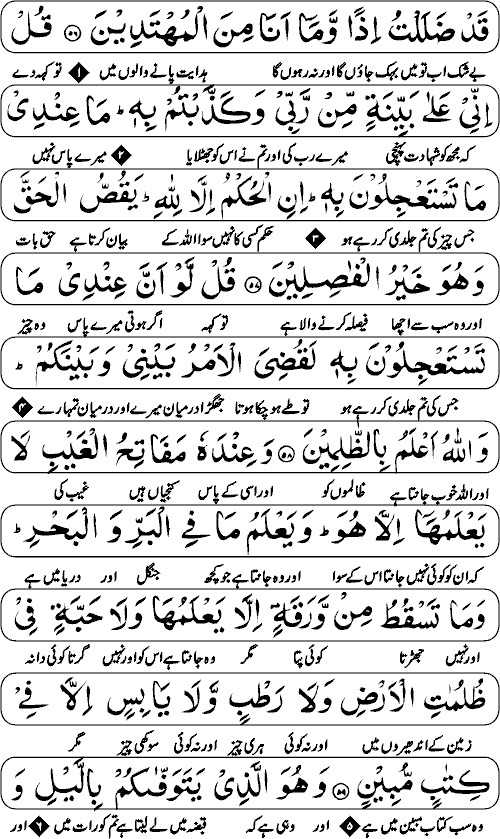 قَدْ ضَلَلْتُ اِذًا وَّمَاۤ اَنَا مِنَ الْمُهْتَدِيْنَ ﴿۵۶﴾ قُلْ
بے شک اب تو میں بہک جاؤں گا اور نہ رہوں گا ہدایت پانے والوں میں ۱ تو کہہ دے
اِنِّیْ عَلٰی بَيِّنَةٍ مِّنْ رَّبِّیْ وَ كَذَّبْتُمْ بِهٖ ؕ مَا عِنْدِیْ
کہ مجھ کو شہادت پہنچی میرے رب کی اور تم نے اس کو جھٹلایا ۲ میرے پاس نہیں
مَا تَسْتَعْجِلُوْنَ بِهٖ ؕ اِنِ الْحُكْمُ اِلَّا لِلّٰهِ ؕ يَقُصُّ الْحَقَّ
جس چیز کی تم جلدی کر رہے ہو ۳ حکم کسی کا نہیں سوا اللہ کے بیان کرتا ہے حق بات
وَهُوَ خَيْرُ الْفٰصِلِيْنَ ﴿۵۷﴾ قُلْ لَّوْ اَنَّ عِنْدِیْ مَا
اور وہ سب سے اچھا فیصلہ کرنے والا ہے تو کہہ اگر ہوتی میرے پاس وہ چیز
تَسْتَعْجِلُوْنَ بِهٖ لَقُضِیَ الْاَمْرُ بَيْنِیْ وَبَيْنَكُمْ ؕ
جس کی تم جلدی کر رہے ہو تو طے ہو چکا ہوتا جھگڑا درمیان میرے اور درمیان تمہارے ۴
وَاللّٰهُ اَعْلَمُ بِالظّٰلِمِيْنَ ﴿۵۸﴾ وَعِنْدَهٗ مَفَاتِحُ الْغَيْبِ لَا
اور اللہ خوب جانتا ہے ظالموں کو اور اسی کے پاس کنجیاں ہیں غیب کی
يَعْلَمُهَاۤ اِلَّا هُوَ ؕ وَيَعْلَمُ مَا فِی الْبَرِّ وَ الْبَحْرِ ؕ
کہ ان کو کوئی نہیں جانتا اس کے سوا اور وہ جانتا ہے جو کچھ جنگل اور دریا میں ہے
وَمَا تَسْقُطُ مِنْ وَّرَقَةٍ اِلَّا يَعْلَمُهَا وَلَا حَبَّةٍ فِیْ
اور نہیں جھڑتا کوئی پتا مگر وہ جانتا ہے اس کو اور نہیں گرتا کوئی دانہ
ظُلُمٰتِ الْاَرْضِ وَلَا رَطْبٍ وَّلَا يَابِسٍ اِلَّا فِیْ
زمین کے اندھیروں میں اور نہ کوئی ہری چیز اور نہ کوئی سوکھی چیز مگر
كِتٰبٍ مُّبِيْنٍ ﴿۵۹﴾ وَهُوَ الَّذِیْ يَتَوَفّٰىكُمْ بِالَّيْلِ وَ
وہ سب کتاب مبین میں ہے ۵ اور وہی ہے کہ قبضہ میں لے لیتا ہے تم کو رات میں ۶ اور